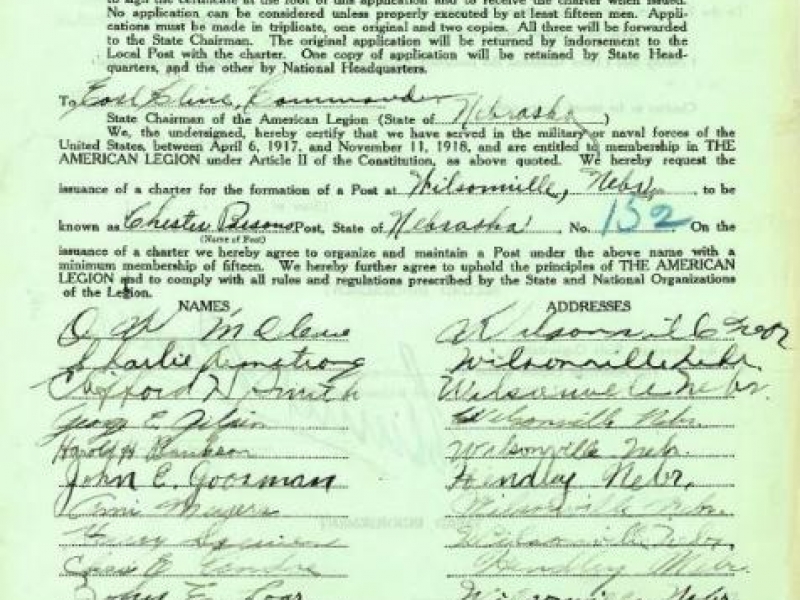 to sign the certificate at the foot of this application and to receive the charter when issued.
No application can be considered unless properly executed by at least fifteen men. Appli-
cations must be made in triplicate, one original and two copies. All three will be forwarded
to the State Chairman. The original application will be returned by indorsement to the
Local Post with the charter. One copy of application will be retained by State Head-
quarters, and the other by National Headquarters.
To Earl Cline, Commander
State Chairman of the American Legion (State of Nebraska)
We, the undersigned, hereby certify that we have served in the military or naval forces of the
United States, between April 6, 1917, and November 11, 1918, and are entitled to membership in THE
AMERICAN LEGION under Article II of the Constitution, as above quoted. We hereby request the
issuance of a charter for the formation of a Post at Wilsonville, Nebr. to be
known as Chester Post, State of Nebraska No. 132 On the
(Name of Post)
issuance of a charter we hereby agree to organize and maintain a Post under the above name with a
minimum membership of fifteen. We hereby further agree to uphold the principles of THE AMERICAN
LEGION and to comply with all rules and regulations prescribed by the State and National Organizations
of the Legion.
NAMES ADDRESSES
Wilsonville Nebr
Charlie Armstrong Wilsonville Nebr.
Clifford Smith Wilsonville Nebr.
George E. Wilsonville Nebr.
Harold H Wilsonville Nebr.
John E. Goosman Hendley Nebr.
Meyers Wilsonville Nebr.
Wilsonville Nebr.
Hendley Nebr.
Wilsonville Nebr